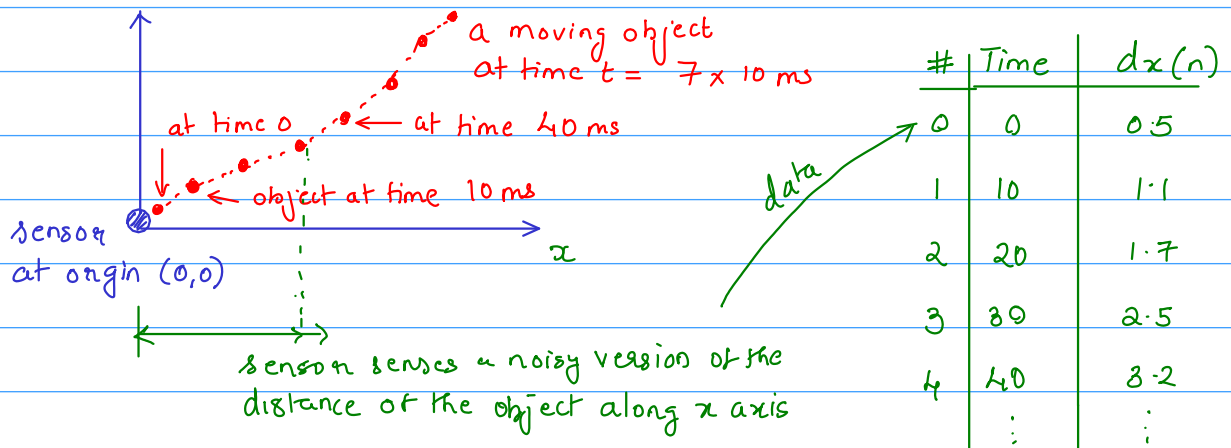 a moving object
at time t = 7 x 10 ms
at time 0
at time 40 ms
object at time 10 ms
sensor
at origin (0,0)
x
sensor senses a noisy version of the
distance of the object along x axis
data
# Time dx(n)
0 0 0.5
1 10 1.1
2 20 1.7
3 30 2.5
4 40 3.2
⋮ ⋮